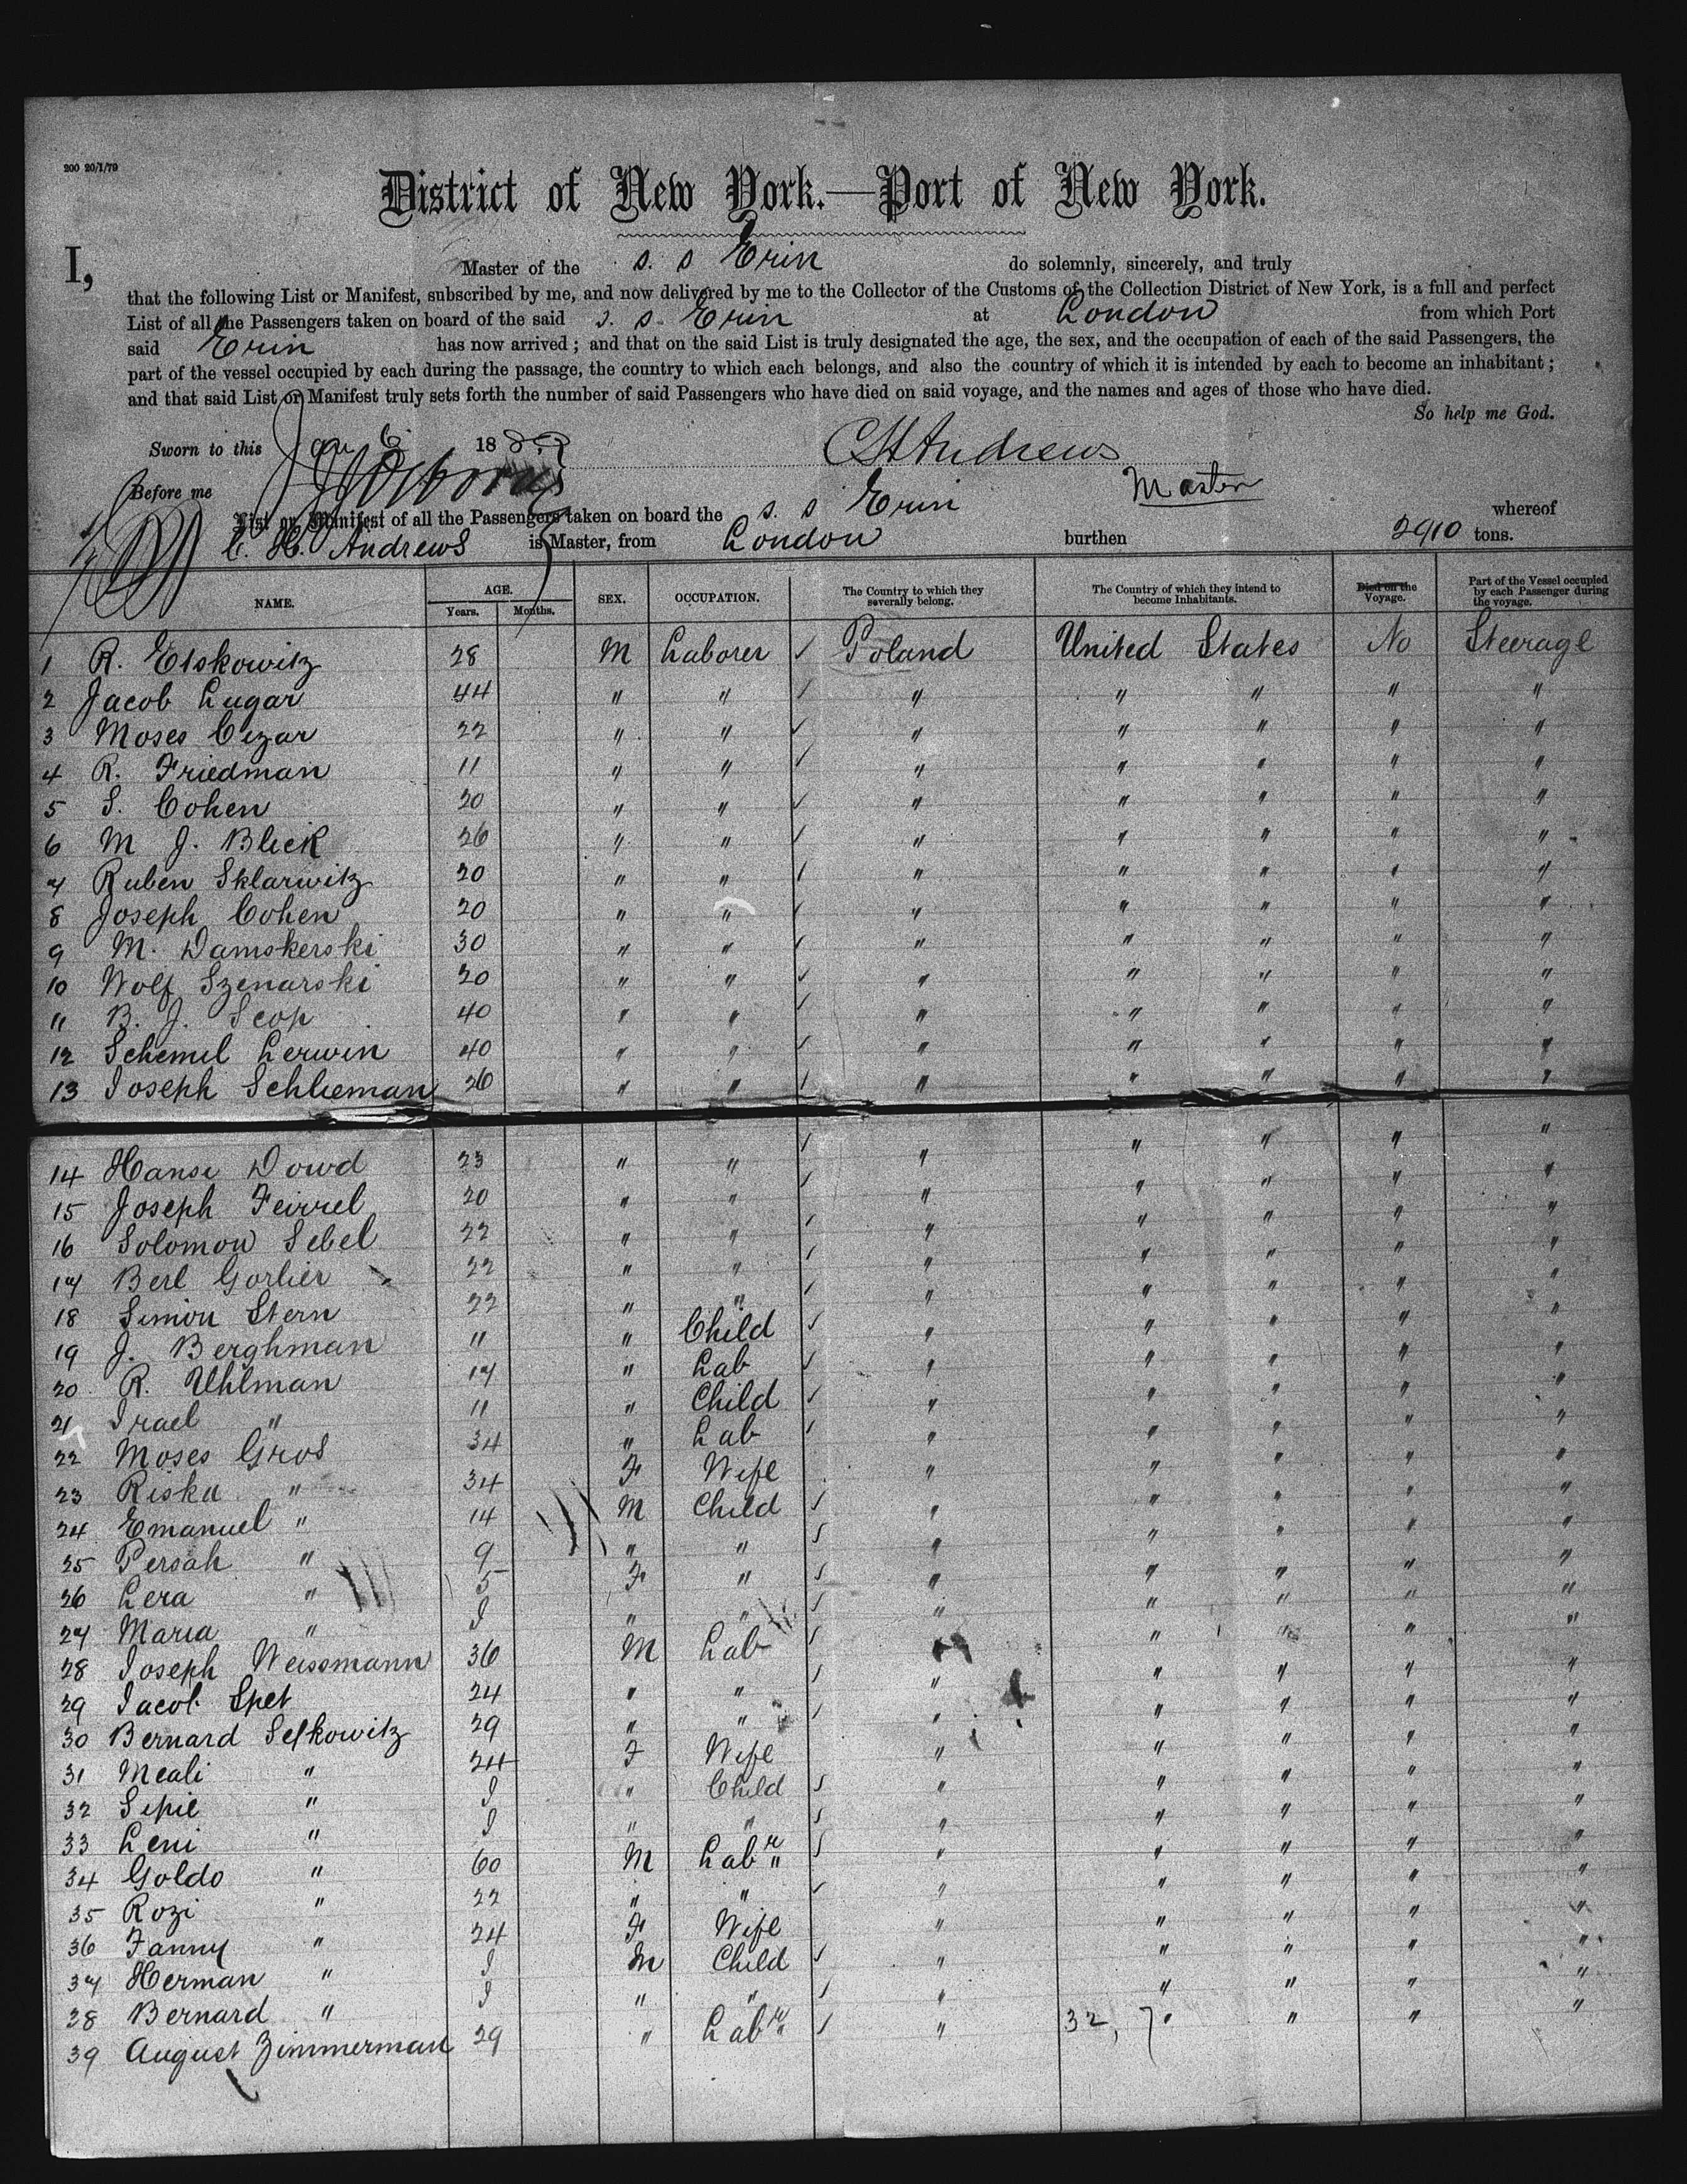 200 20/1/79
District of New York.—Port of New York.
I, Master of the s. s Erin do solemnly, sincerely, and truly
that the following List or Manifest, subscribed by me, and now delivered by me to the Collector of the Customs of the Collection District of New York, is a full and perfect
List of all the Passengers taken on board of the said s. s. Erin at London from which Port
said Erin has now arrived; and that on the said List is truly designated the age, the sex, and the occupation of each of the said Passengers, the
part of the vessel occupied by each during the passage, the country to which each belongs, and also the country of which it is intended by each to become an inhabitant;
and that said List or Manifest truly sets forth the number of said Passengers who have died on said voyage, and the names and ages of those who have died.
So help me God.
Sworn to this Jan 6 188 CH Andrews
Before me Master
List or Manifest of all the Passengers taken on board the s. s Erin whereof
C. H. Andrews is Master, from London burthen 2910 tons.
NAME. AGE. Years. Months. SEX. OCCUPATION. The Country to which they severally belong. The Country of which they intend to become Inhabitants. Died on the Voyage. Part of the Vessel occupied by each Passenger during the voyage.
1 R. Elskowitz 28 M Laborer ✓ Poland United States No Steerage
2 Jacob Lugar 44 " " ✓ " " " " "
3 Moses Cizar 22 " " ✓ " " " " "
4 R. Friedman 11 " " ✓ " " " " "
5 S. Cohen 20 " " ✓ " " " " "
6 M J. Blick 26 " " ✓ " " " " "
7 Ruben Sklarwitz 20 " " ✓ " " " " "
8 Joseph Cohen 20 " " ✓ " " " " "
9 M. Damskerski 30 " " ✓ " " " " "
10 Wolf Szenarski 20 " " ✓ " " " " "
11 B. J. Scop 40 " " ✓ " " " " "
12 Schemil Lerwin 40 " " ✓ " " " " "
13 Joseph Schlieman 26 " " ✓ " " " " "
14 Hansi Dowd 23 " " ✓ " " " " "
15 Joseph Feirrel 20 " " ✓ " " " " "
16 Solomon Sebel 22 " " ✓ " " " " "
17 Berl Gorlier 22 " " ✓ " " " " "
18 Simon Stern 22 " " ✓ " " " " "
19 J. Berghman 11 " Child ✓ " " " " "
20 R. Uhlman 17 " Lab ✓ " " " " "
21 Irael " 11 " Child ✓ " " " " "
22 Moses Gros 34 " Lab ✓ " " " " "
23 Riska " 34 F Wife " " " " "
24 Emanuel " 14 M Child ✓ " " " " "
25 Persah " 9 " " ✓ " " " " "
26 Lera " 5 F " ✓ " " " " "
27 Maria " I " " ✓ " " " " "
28 Joseph Weissmann 36 M Lab ✓ " " " " "
29 Jacob Spet 24 " " ✓ " " " " "
30 Bernard Selkowitz 29 " " ✓ " " " " "
31 Meali " 24 F Wife " " " " "
32 Sepie " I " Child ✓ " " " " "
33 Leni " I " " ✓ " " " " "
34 Goldo " 60 M Labr " ✓ " " " " "
35 Rozi " 22 " " ✓ " " " " "
36 Fanny " 24 F Wife " " " " "
37 Herman " I M Child ✓ " " " " "
38 Bernard " I " " ✓ " " " " "
39 August Zimmerman 29 " Labr " ✓ " 32, 7 " " " "